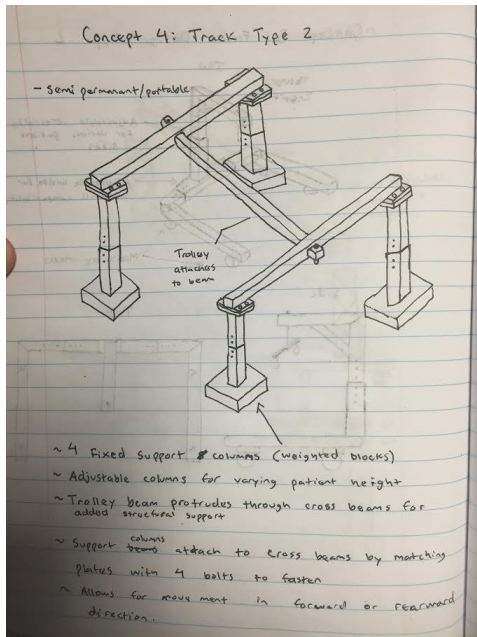 Concept 4: Track Type 2
- Semi permanant/portable
Trolley
attaches
to beam
~ 4 Fixed Support columns (weighted blocks)
~ Adjustable columns for varying patient height
~ Trolley beam protrudes through cross beams for
added structural support
~ Support columns attach to cross beams by matching
plates with 4 bolts to fasten
~ Allows for movement in forward or rearward
direction.